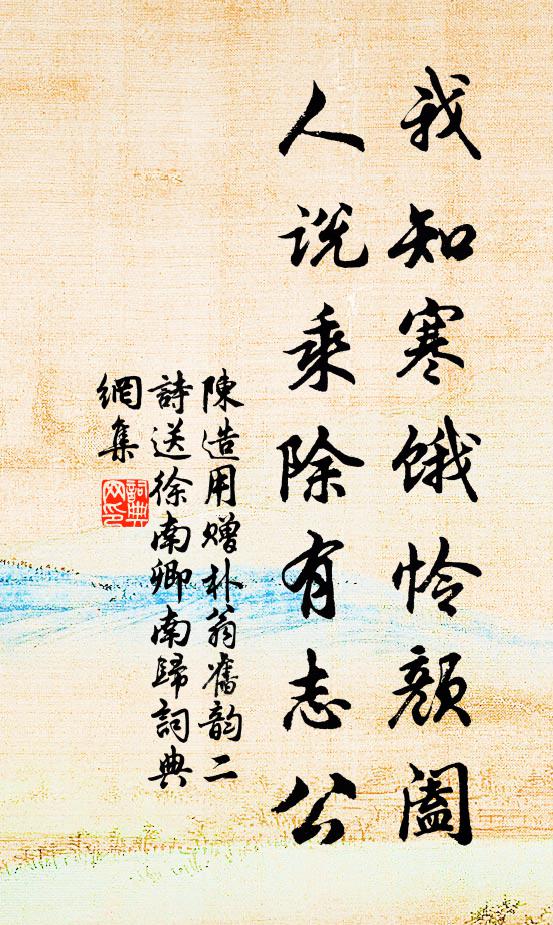 我知寒餓怜顏闔
人説乘除有志公
陳造用贈朴翁舊韵二
詩送徐南卿南歸詞典
網集
詞典
网印